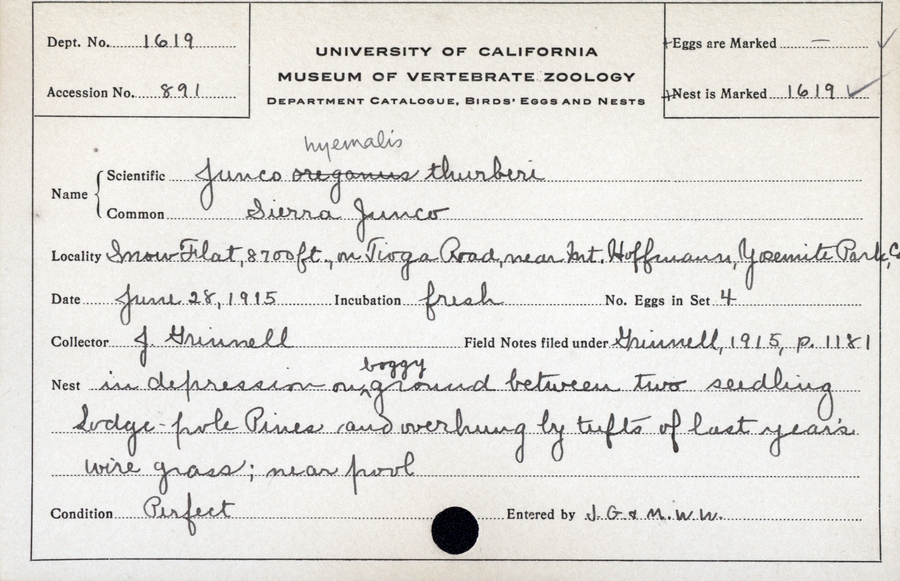 Dept. No. 1619
Accession No. 891
UNIVERSITY OF CALIFORNIA
MUSEUM OF VERTEBRATE ZOOLOGY
DEPARTMENT CATALOGUE, BIRDS' EGGS AND NESTS
Eggs are Marked —
Nest is Marked 1619 ✓
hyemalis
Name
Scientific Junco oreganus thurberi
Common Sierra Junco
Locality Snow Flat, 8700 ft., on Tioga Road, near Mt. Hoffmann, Yosemite Park, C
Date June 28, 1915 Incubation fresh No. Eggs in Set 4
Collector J. Grinnell Field Notes filed under Grinnell, 1915, p. 1181
boggy
Nest in depression on ^ ground between two seedling
Lodge-pole Pines and overhung by tufts of last year's
wire grass; near pool
Condition Perfect Entered by J.G & M.W.W.